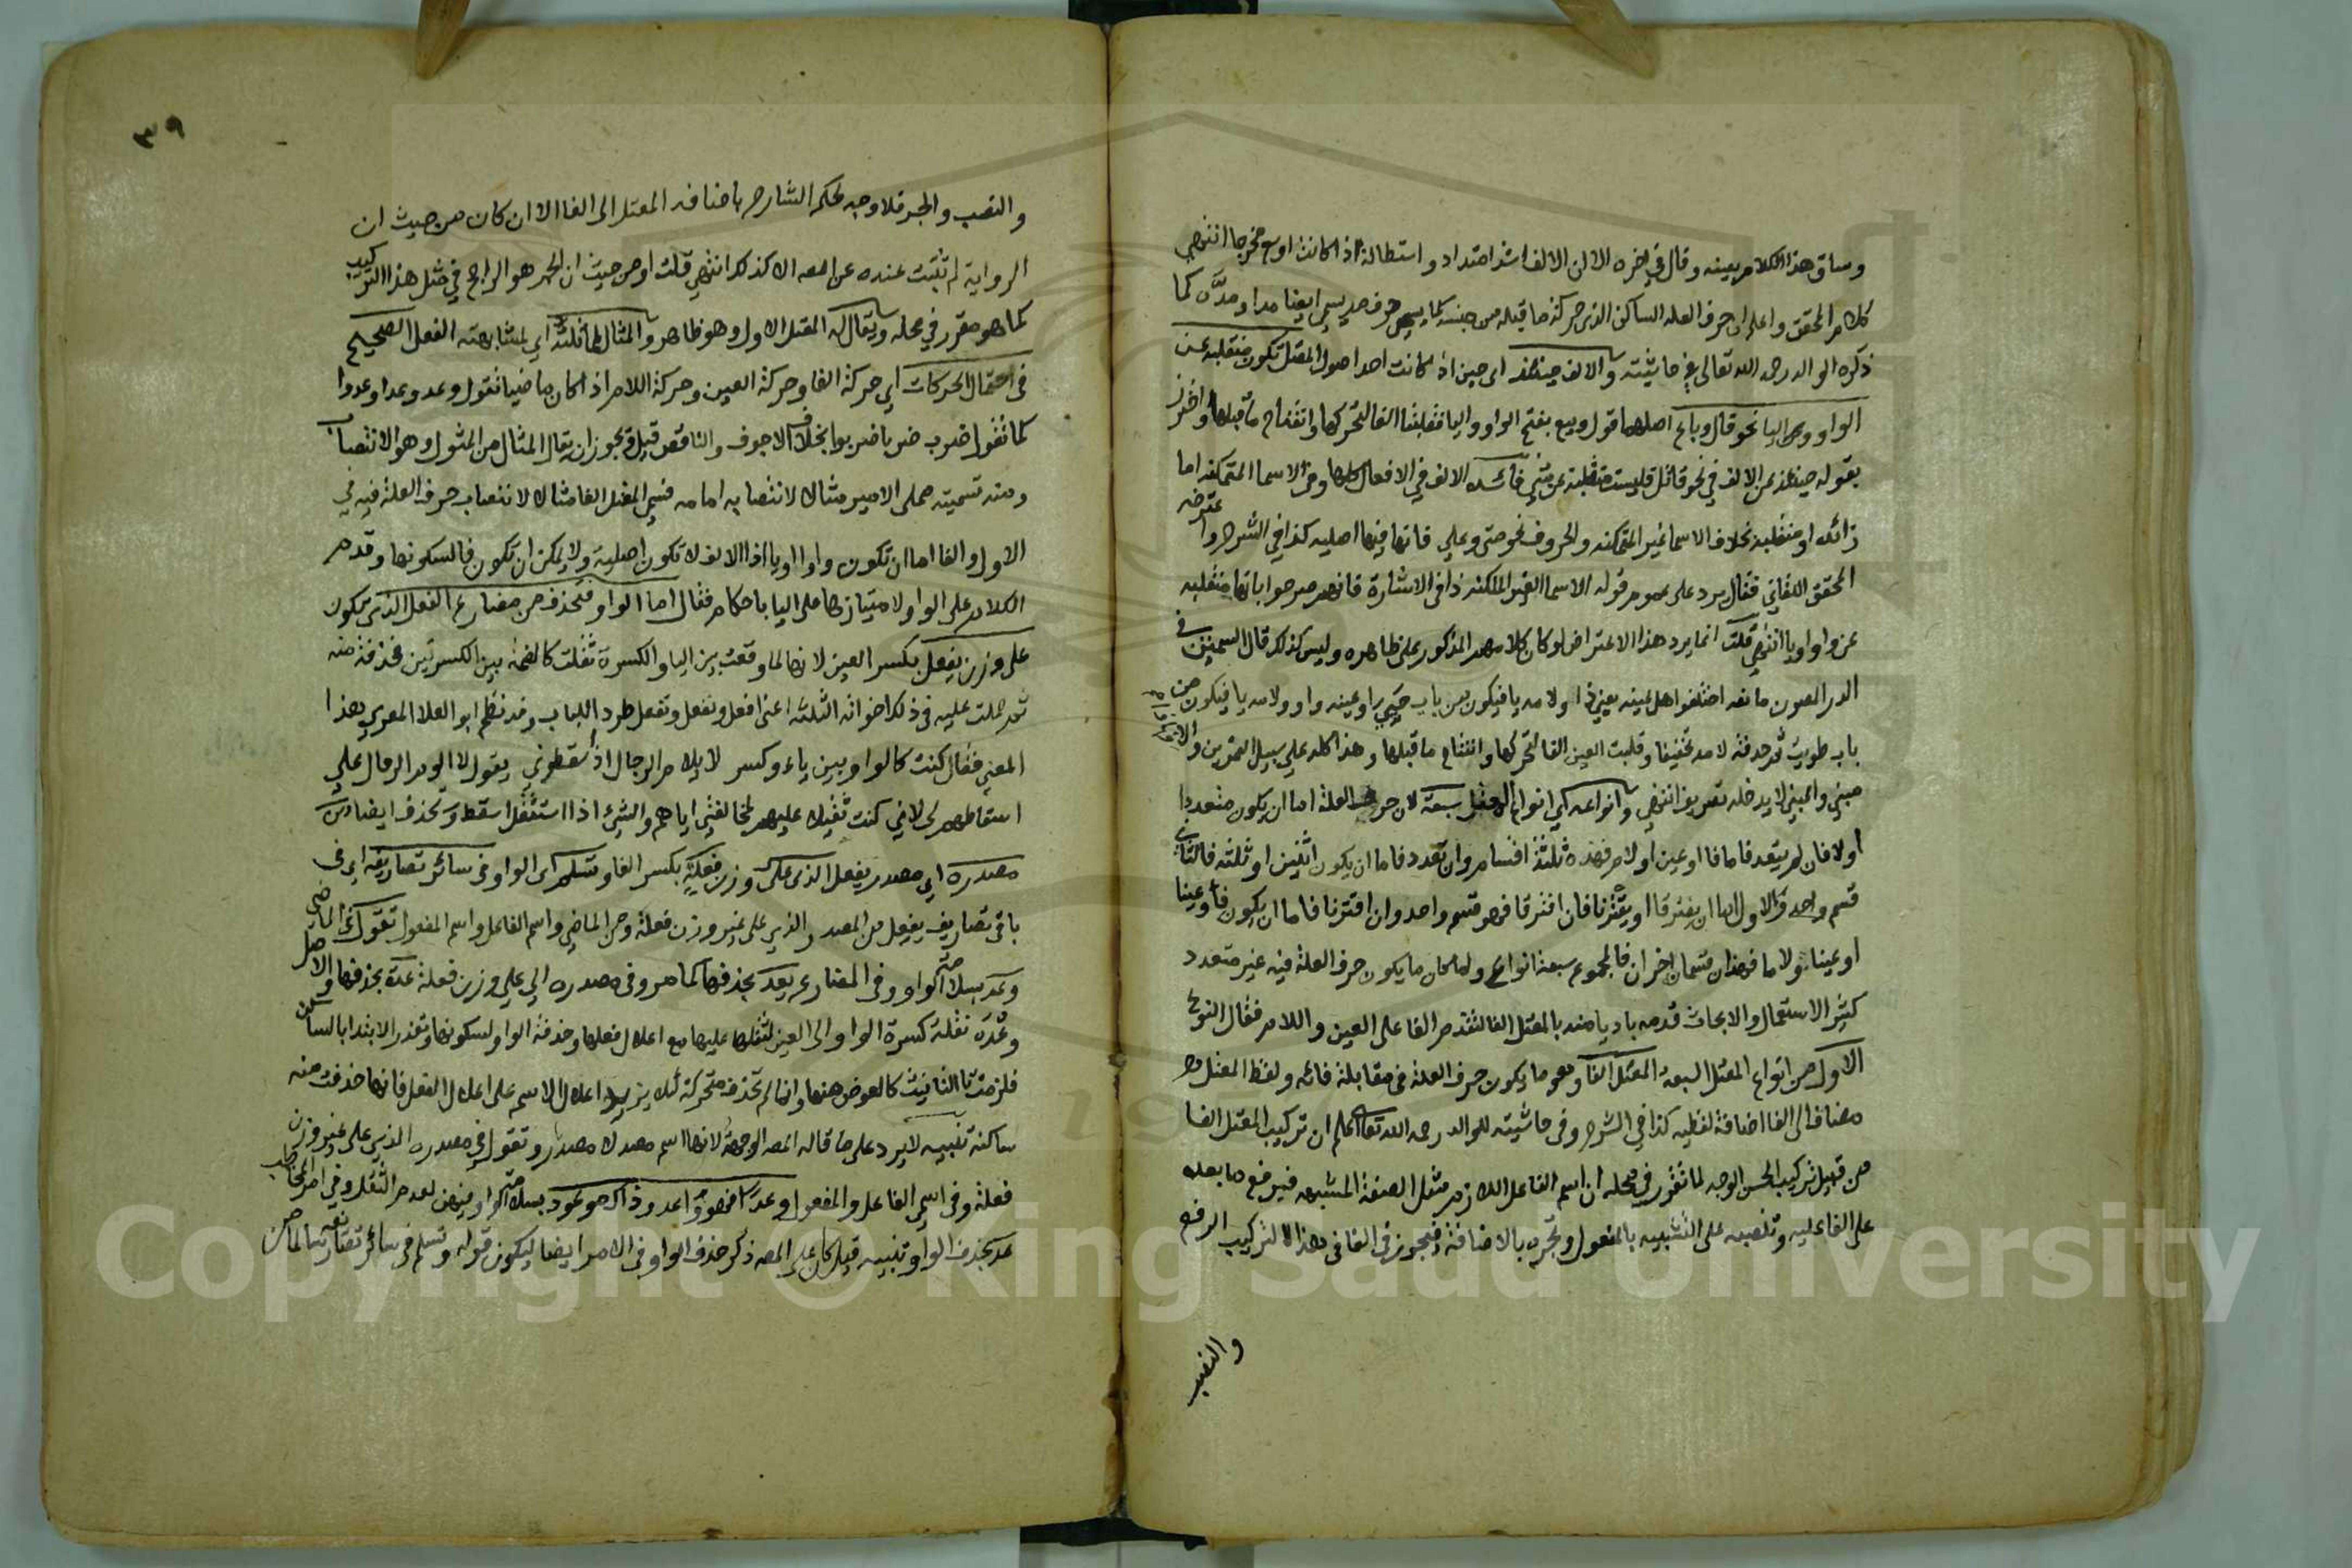 وساق هذا الكلام بعينه وقال في اخره الا ان الالف اشد امتداد واستطالة اذ اكانت اوسع مخرجا انتهى
كلام المحقق واعلم ان حرف العله الساكن الذي حركة ما قبله من جنسه كما يسمى حرف مد يسمى ايضا مدا ومدّه كما
ذكره الوالد رحمه الله تعالى في حاشيته والالف حينئذ اى حين اذ كانت احد اصول المعتل تكون منقلبة عن
الواو وعن اليا نحو قال وباع اصلهما قول وبيع بفتح الواو واليا فقلبتا الفا لتحركها وانفتاح ما قبلها واحترز
بقوله حينئذ عن الالف في نحو قاتل فليست منقلبة عن شيء فائده الالف في الافعال كلها وفي الاسما المتمكنه اما
زائده او منقلبة بخلاف الاسما الغير المتمكنه والحروف نحو متى وعلى فانها فيها اصليه كذا في الشرح واعترضه
المحقق اللقاني فقال يرد على عموم قوله الاسما الغير المتمكنه ذا في الاشارة فانهم صرحوا بانها منقلبه
عن واو او يا انتهى قلت انما يرد هذا الاعتراض لو كان كلامهم المذكور على ظاهره وليس كذلك قال السمين في
الدر المصون ما نصه اختلفوا هل عينه يعني ذا ولامه يا فيكون من باب حيي او عينه واو ولامه يا فيكون من
باب طويت ثم حذفت لامه تخفيفا وقلبت العين الفا لتحركها وانفتاح ما قبلها وهذا كله على سبيل التمرين والا
مبني والمبني لا يدخله تصريف انتهى وانواعه اي انواع المعتل سبعة لان حرف العلة اما ان يكون متعددا
اولا فان لم يتعدد فاما فا او عين او لام فهذه ثلثة اقسام وان تعدد فاما ان يكون اثنين او ثلثه فالثاني
قسم واحد والاول اما ان يفترقا او يقترنا فان افترقا فهو قسم واحد وان اقترنا فاما ان يكون فا وعينا
او عينا ولا ما فهذان قسمان اخران فالمجموع سبعة انواع ولما كان ما يكون حرف العلة فيه غير متعدد
كثير الاستعمال والابحاث قدمه باديا منه بالمعتل الفا لتقدم الفا على العين واللام فقال النوع
الاول من انواع المعتل السبعه المعتل الفا وهو ما يكون حرف العلة في مقابلة فائه ولفظ المعتل
مضاف الى الفا اضافة لفظيه كذا في الشرح وفي حاشيته للوالد رحمه الله تعالى اعلم ان تركيب المعتل الفا
من قبيل تركيب الحسن الوجه لما تقرر في محله ان اسم الفاعل اللازم مثل الصفة المشبهه فيرفع ما بعده
على الفاعليه وتنصبه على التشبيه بالمفعول وتجره بالاضافة فيجوز في الفا في هذا التركيب الرفع
والنصب
٣٩
والنصب والجر فلا وجه لحكم الشارح باضافة المعتل الى الفا الا ان كان من حيث ان
الرواية لم تثبت عنده عن المصه الا كذلك انتهى قلت او من حيث ان الجر هو الراجح في مثل هذا التركيب
كما هو مقرر في محله ويقال له المعتل الاول وهو ظاهر والمثال لمماثلته اي لمشابهته الفعل الصحيح
في احتمال الحركات اي حركة الفا وحركة العين وحركة اللام اذ اكان ماضيا تقول وعد وعدا وعدوا
كما تقول ضرب ضربا ضربوا بخلاف الاجوف والناقص قيل ويجوز ان يقال المثال من المثول وهو الانتصاب
ومنه تسميته مملى الامير مثالا لانتصابه امامه فسمى المعتل الفا مثالا لانتصاب حرف العلة فيه في
الاول والفا اما ان تكون واوا او يا اذ الالف لا تكون اصلية ولا يمكن ان تكون فا لسكونها وقدم
الكلام على الواو لامتيازها على اليا باحكام فقال اما الواو فتحذف من مضارع الفعل الذي يكون
على وزن يفعل بكسر العين لانها لما وقعت بين اليا والكسرة ثقلت كالضمة بين الكسرتين فحذفت منه
ثم حملت عليه في ذلك اخواته الثلثه اعني افعل ونفعل وتفعل طرد اللباب وقد نظم ابو العلا المعري هذا
المعنى فقال كنت كالواو بين ياء وكسر لا يلام الرجال اذ اسقطوني يقول لا الوم الرجال على
اسقاطهم لي لاني كنت ثقيلا عليهم لمخالفتي اياهم والشيء اذا استثقل اسقط وتحذف ايضا من
مصدره اي مصدر يفعل الذي على وزن فعلة بكسر الفا وتسلم اى الواو في سائر تصاريفه اي في
باقي تصاريف يفعل من المصدر الذي على غير وزن فعلة ومن الماضي واسم الفاعل واسم المفعول تقول في الماضي
وعد بسلامة الواو وفي المضارع يعد بحذفها كما مر وفي مصدره الى على وزن فعلة عدة بحذفها والاصل
وعدة نقلت كسرة الواو الى العين لثقلها عليها مع اعلال فعلها وحذفت الواو لسكونها وتعذر الابتدا بالساكن
فلزمت تا التانيث كالعوض عنها وانما لم تحذف متحركة لئلا يزيد اعلال الاسم على اعلال الفعل فانها حذفت منه
ساكنة تنبيه لا يرد على ما قاله المصه الوجهة لانها اسم مصدر لا مصدر وتقول في مصدره الذي على غير وزن
فعلة وفي اسمي الفاعل والمفعول وعدا فهو واعد وذاك موعود بسلامة الواو فيهن لعدم الثقل وفي امر المخاطب
عد بحذف الواو تنبيه قيل كان على المصه ذكر حذف الواو في الامر ايضا ليكون قوله وتسلم في سائر تصاريفه سالما من